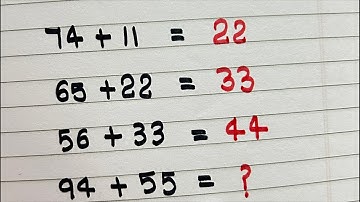 74 + 11 = 22
65 + 22 = 33
56 + 33 = 44
94 + 55 = ?